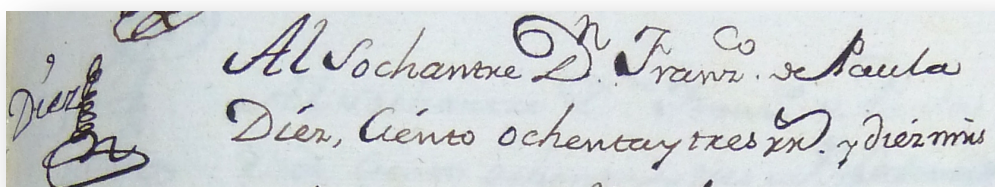 Al Sochantre Dn. Franzco. de Paula
Diez Diez, Ciento ochenta y tres rr. y diez mrs